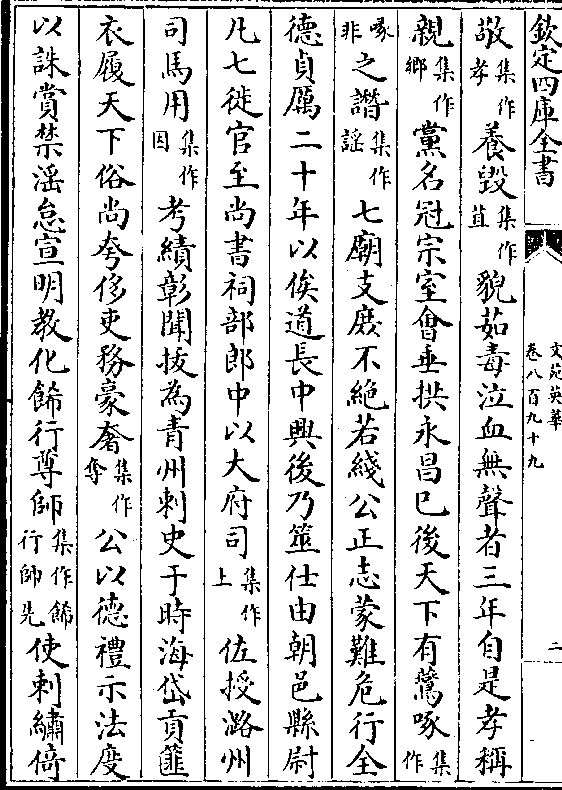 欽定四庫全書
文苑英華
卷八百九十九
二
敬集作孝養毀集作苴貌茹毒泣血無聲者三年自是孝稱
親集作鄉黨名冠宗室會垂拱永昌已後天下有驚啄集作
啄非之譖集作謡七廟支庶不絶若綫公正志蒙難危行全
德貞厲二十年以俟道長中興後乃筮仕由朝邑縣尉
凡七徙官至尚書祠部郎中以大府司集作上佐授潞州
司馬用集作因考績彰聞抜為青州刺史于時海岱貢篚
衣履天下俗尚夸侈吏務豪奢集作奪公以德禮示法度
以誅賞禁滛怠宣明教化餙行尊師集作餙行師先使刺繡倚